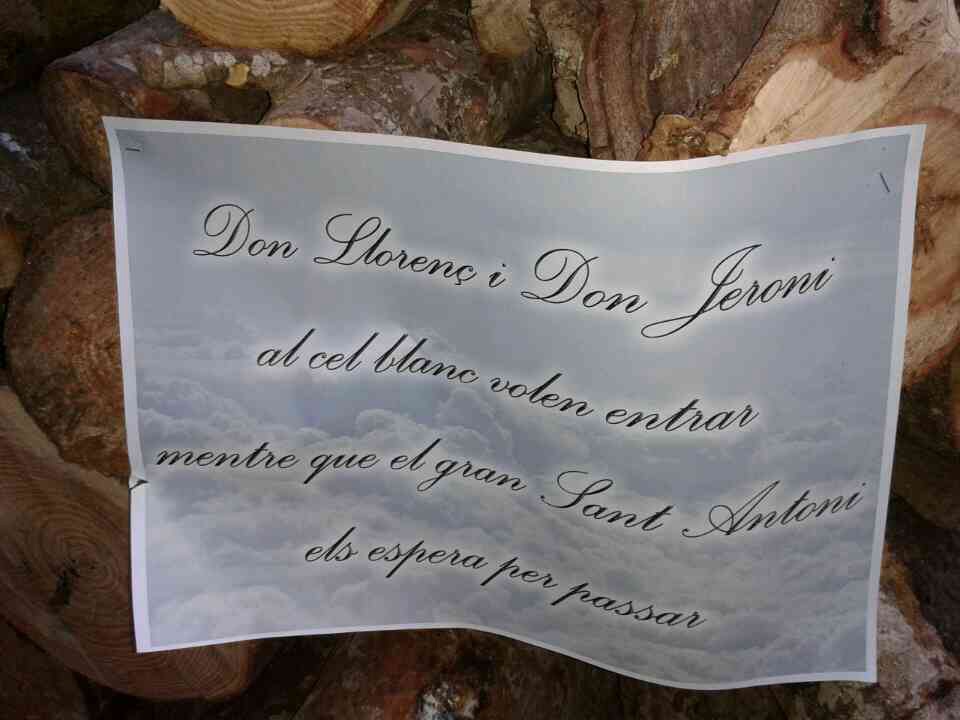 Don Llorenç i Don Jeroni
al cel blanc volen entrar
mentre que el gran Sant Antoni
els espera per passar